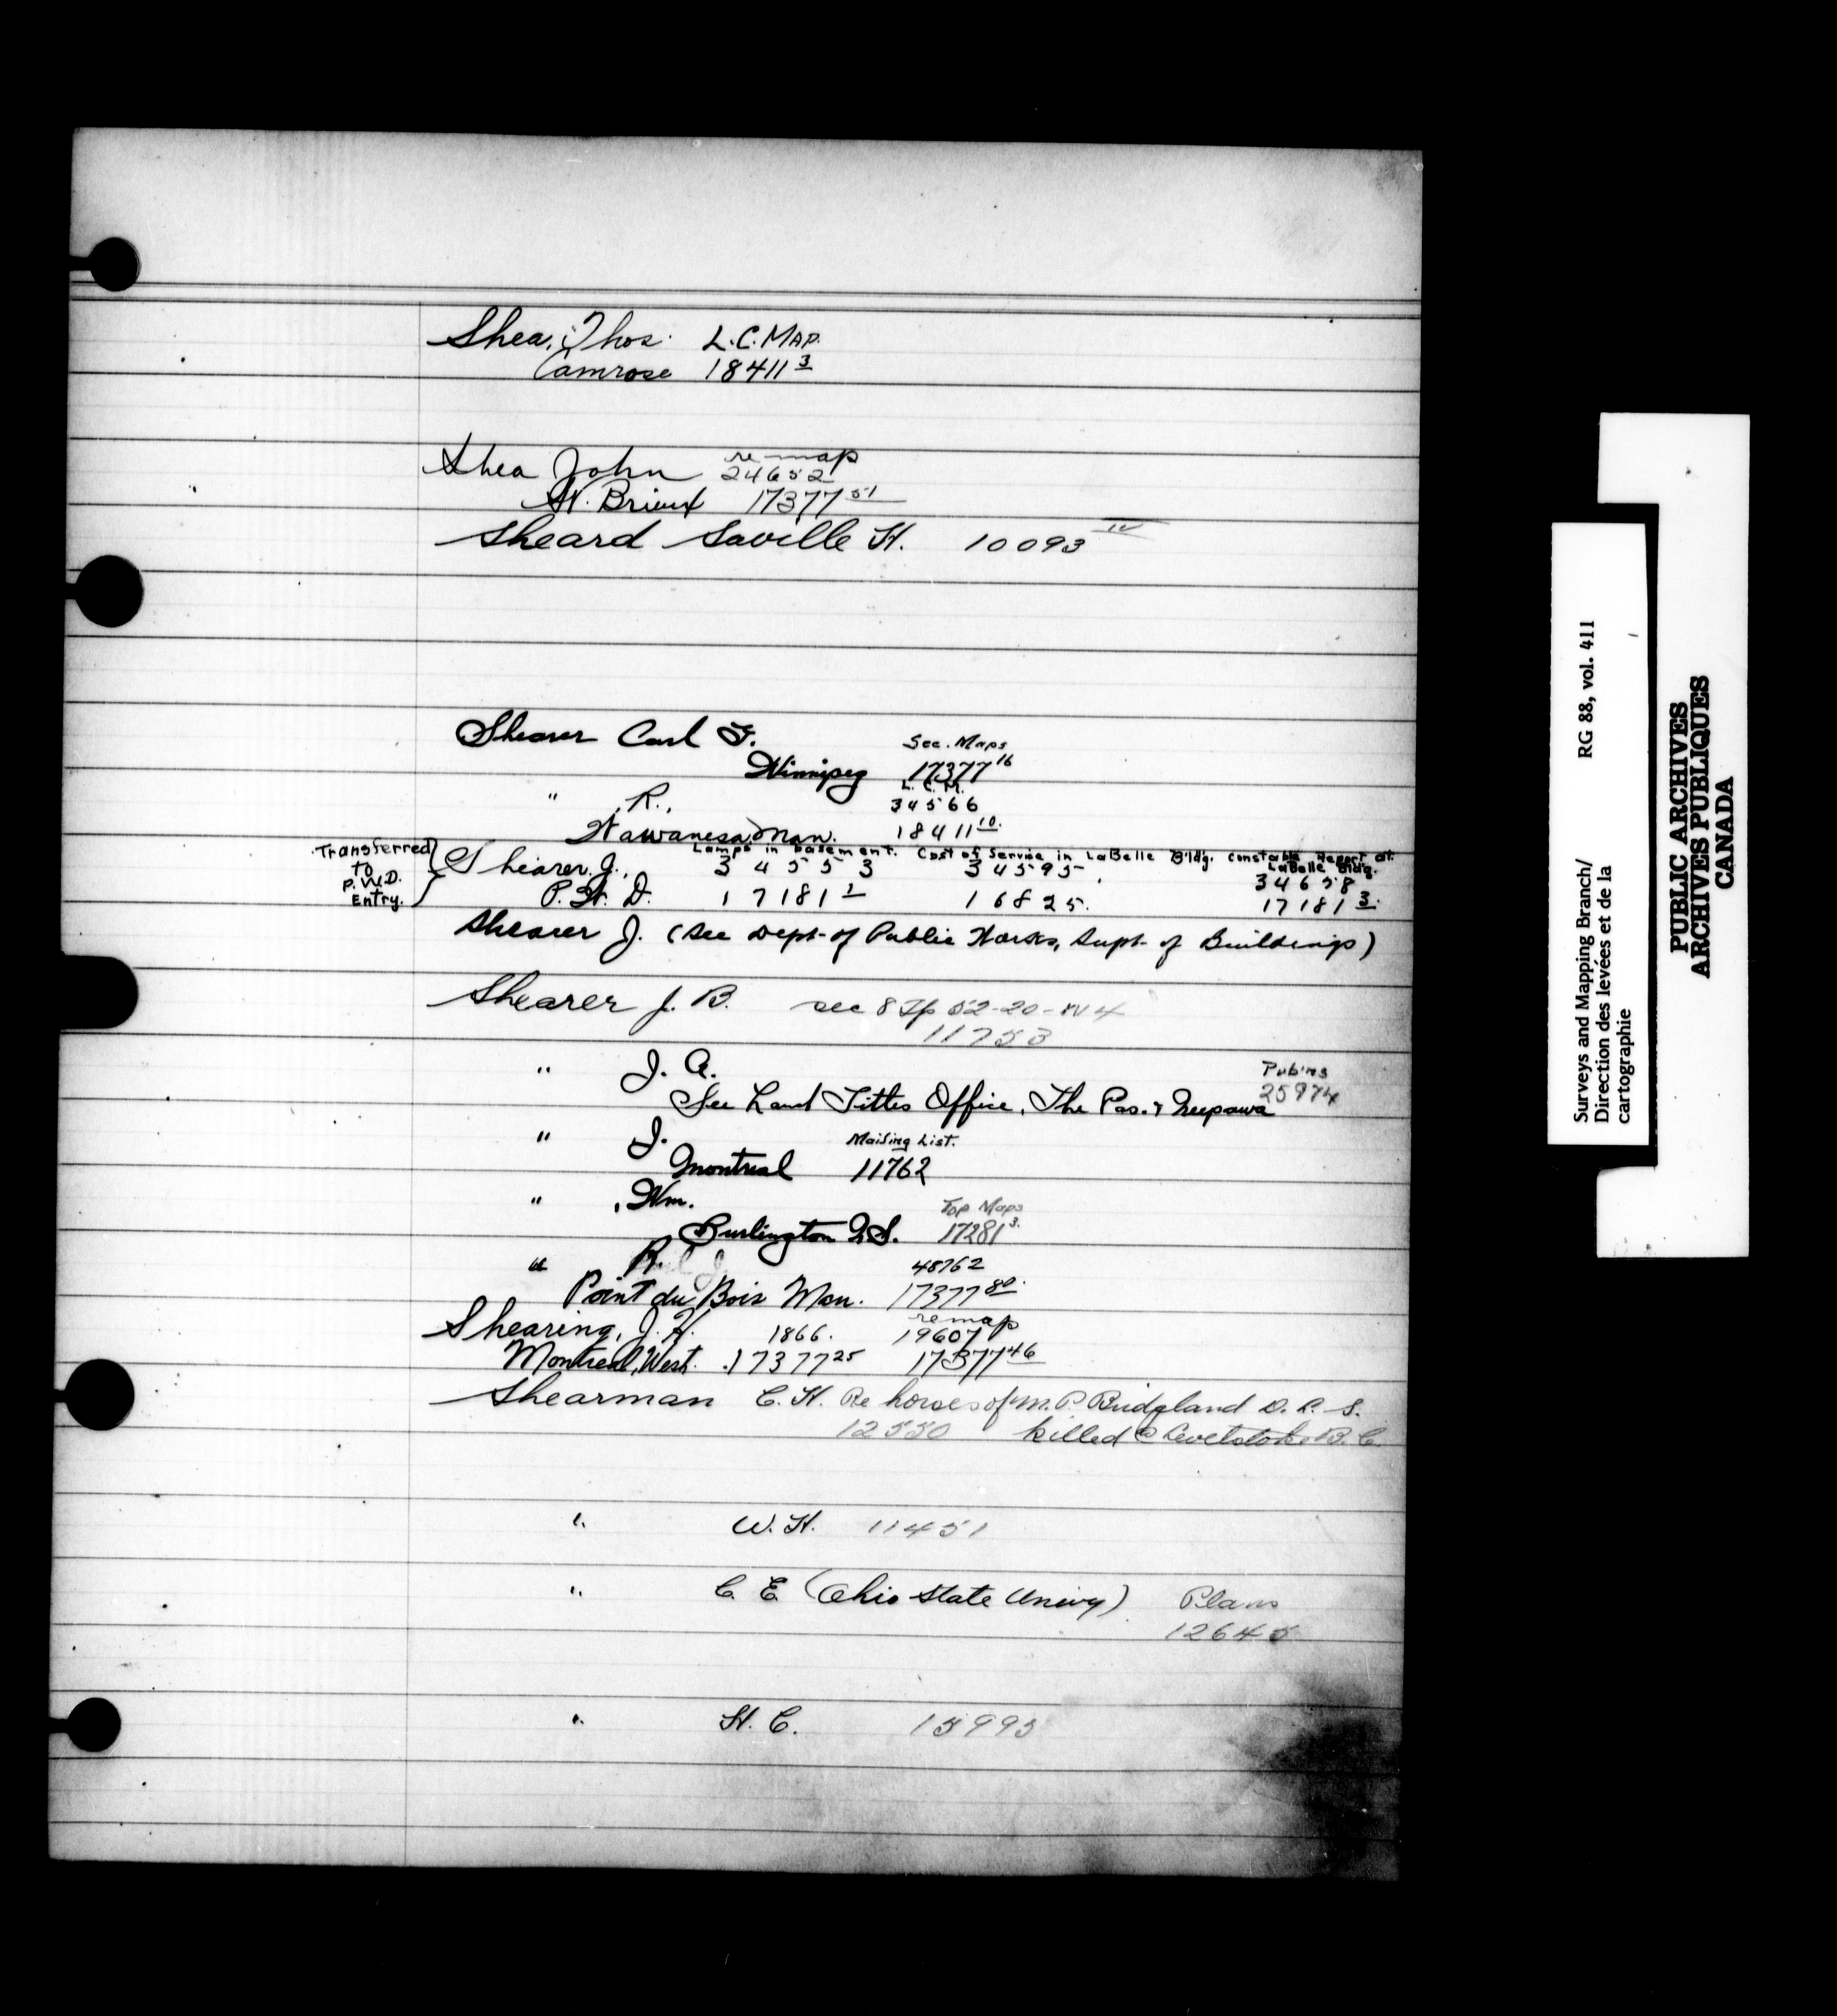 Shea, Thos. L.C. Map.
Camrose 18411 3
Shea John re map
24652
St. Brieux 17377 51
Sheard Saville H. 10093 IV
Shearer Carl F. Sec. Maps
Winnipeg 17377 16
" R., L.C.M.
34566
Wawanesa, Man. 18411 10.
Transferred
to
P.W.D.
Entry.
Lamps in basement. Cost of Service in LaBelle Bldg. Constable Report at.
LaBelle Bldg.
Shearer. J., 34553 34595 34658
P. W. D. 17181 16825. 17181 3.
Shearer J. (See Dept. of Public Works, Supt. of Buildings)
Shearer J. B. sec 8 Tp 52-20-W4
11753
" J. A. Pub'ns
25974
See Land Titles Office, The Pas. & Neepawa
" J. Mailing List.
Montreal 11762
" , Wm. Top Maps
Burlington 17281 3.
" R. 48762
Point du Bois Man. 17377 80.
Shearing, J. H. 1866. re map
19607
Montreal, West. 17377 25 17377 46
Shearman C. H. Re horses of M. P. Bridgland D. L. S.
12550 killed @ Revelstoke B. C.
" W. H. 11451
" C. E. (Ohio State Univy) Plans
12645
" H. C. 15995
Surveys and Mapping Branch/ RG 88, vol. 411
Direction des levées et de la
cartographie
PUBLIC ARCHIVES
ARCHIVES PUBLIQUES
CANADA